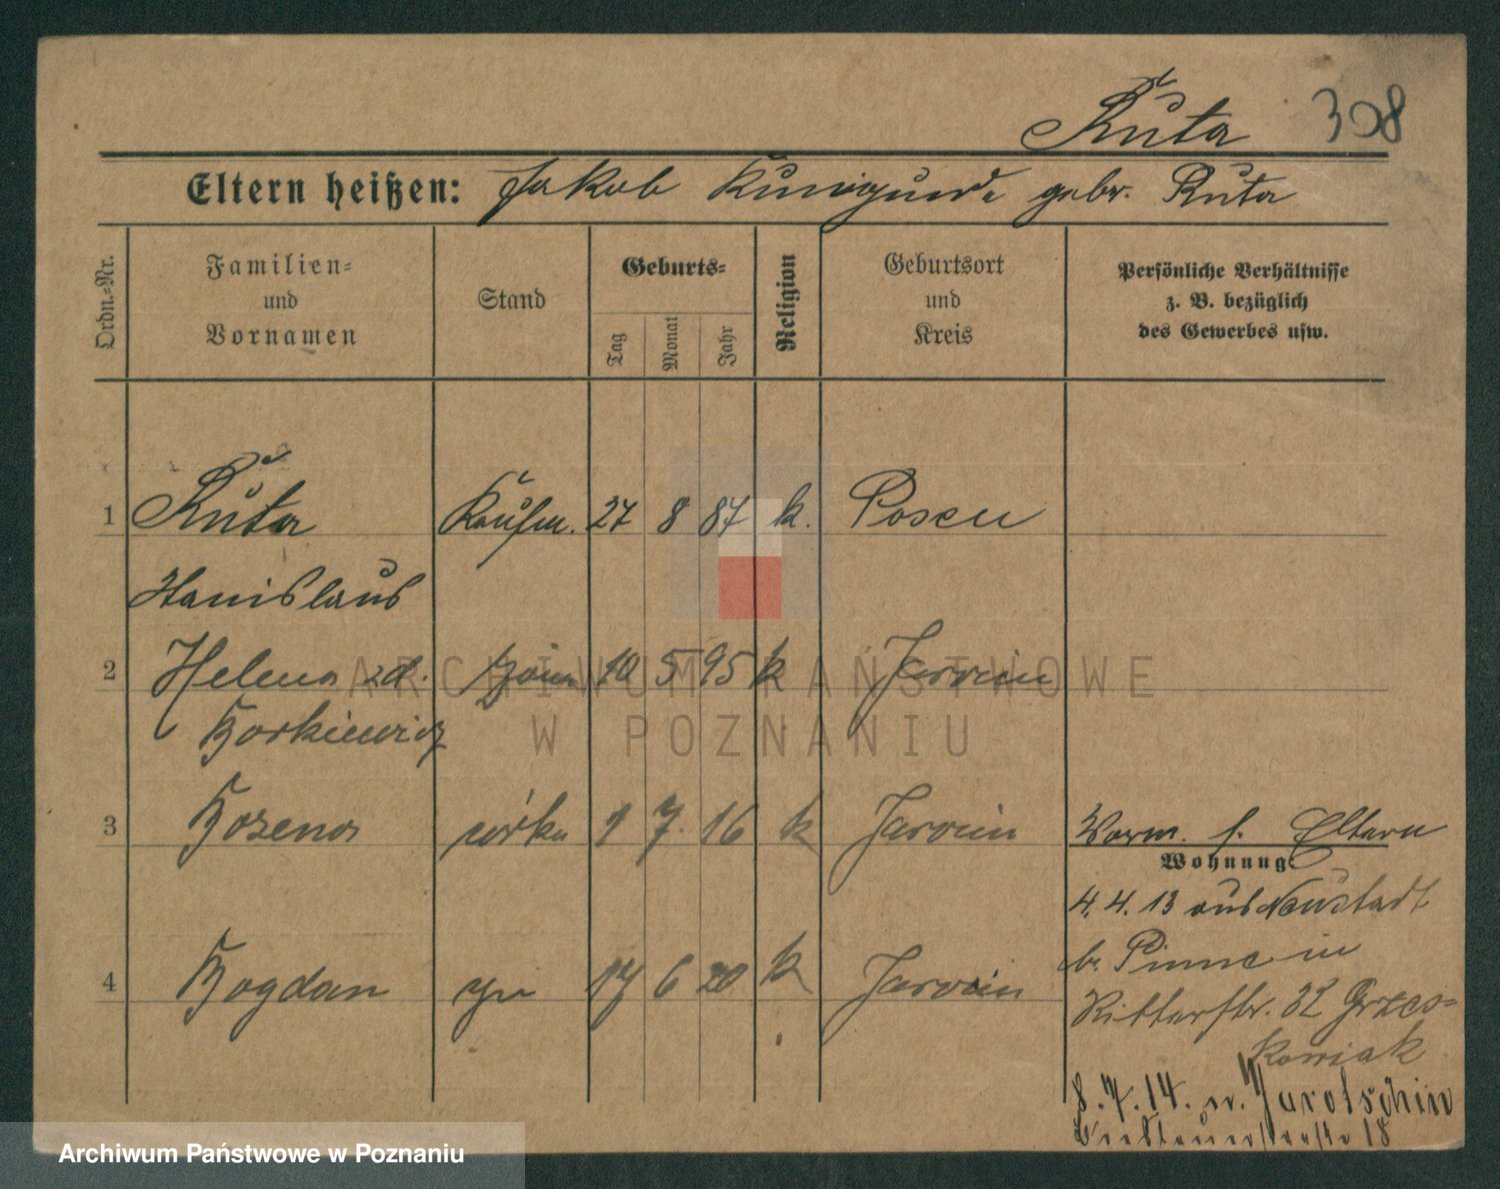 Ruta 308
Eltern heißen: Jakob Kunigunde gebr. Ruta
Ordn.-Nr.
Familien-
und
Vornamen
Stand
Geburts-
Tag
Monat
Jahr
Religion
Geburtsort
und
Kreis
Persönliche Verhältnisse
z. B. bezüglich
des Gewerbes usw.
1 Ruta Kaufm. 27 8 87 k. Posen
Stanislaus
2 Helena zd. żona 10 5 95 k Jarocin
Borkiewicz
3 Bozena córka 1 7. 16 k Jarocin Vorm. s. Eltern
Wohnung:
4. 4. 13 aus Neustadt
4 Bogdan syn 17 6 20 k Jarocin b. Pinne in
Ritterstr. 32 Grzes-
kowiak
8. 7. 14. n. Jarotschin
18
ARCHIWUM PAŃSTWOWE
W POZNANIU
Archiwum Państwowe w Poznaniu